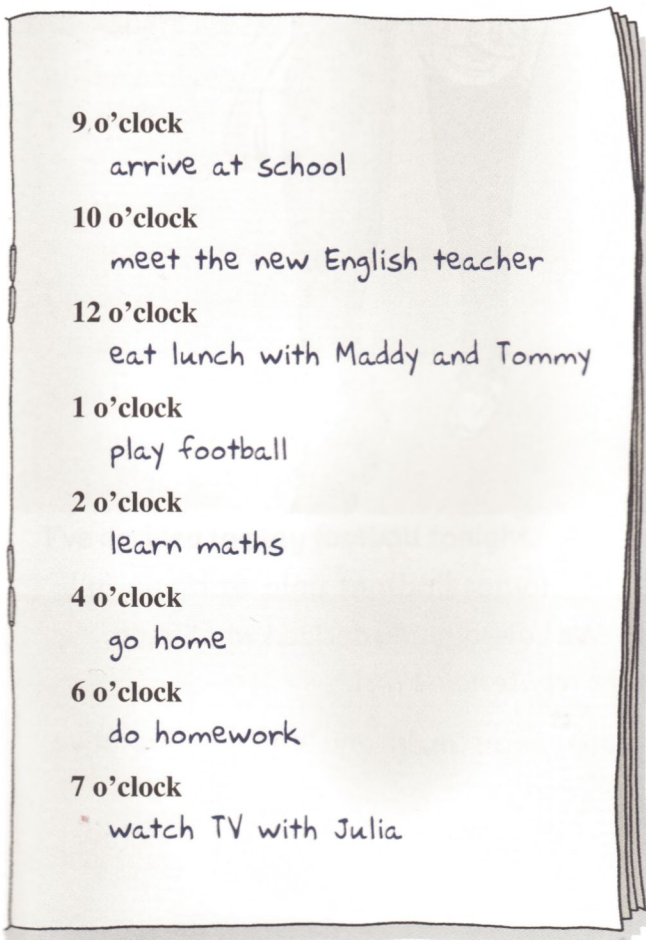 9 o'clock
arrive at school
10 o'clock
meet the new English teacher
12 o'clock
eat lunch with Maddy and Tommy
1 o'clock
play football
2 o'clock
learn maths
4 o'clock
go home
6 o'clock
do homework
7 o'clock
watch TV with Julia